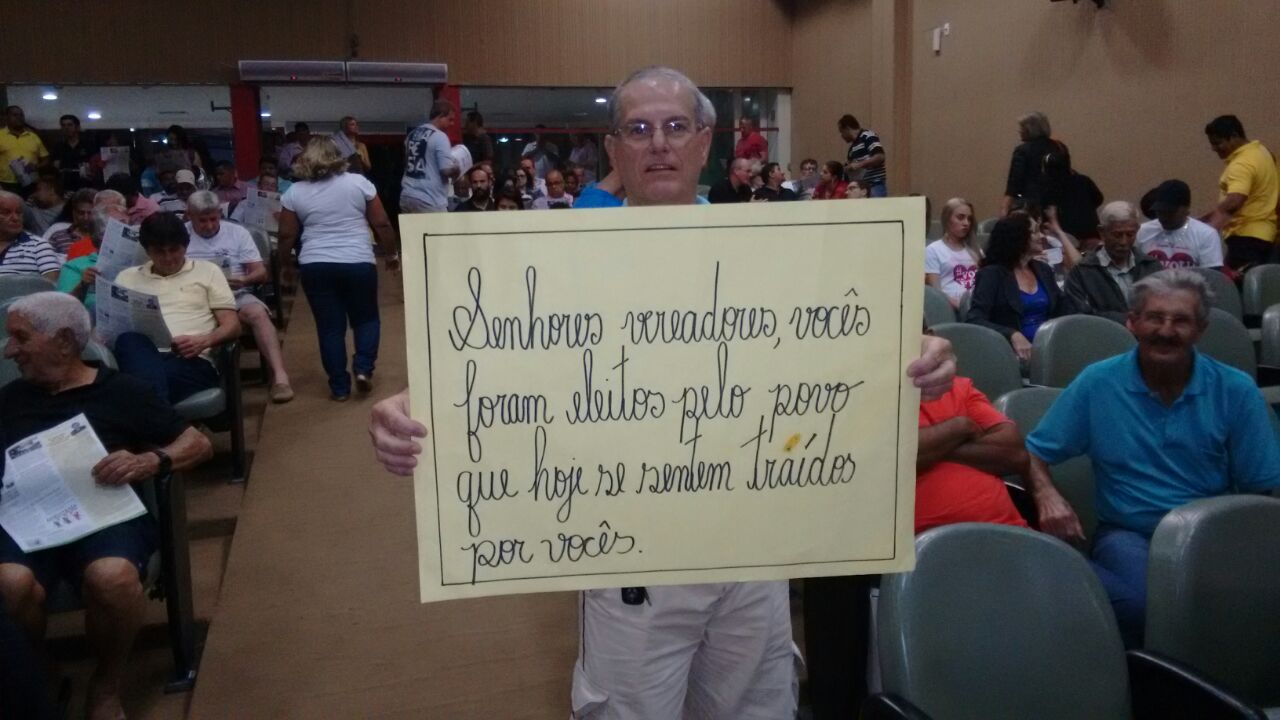 Senhores vereadores, vocês
foram eleitos pelo povo
que hoje se sentem traídos
por vocês.